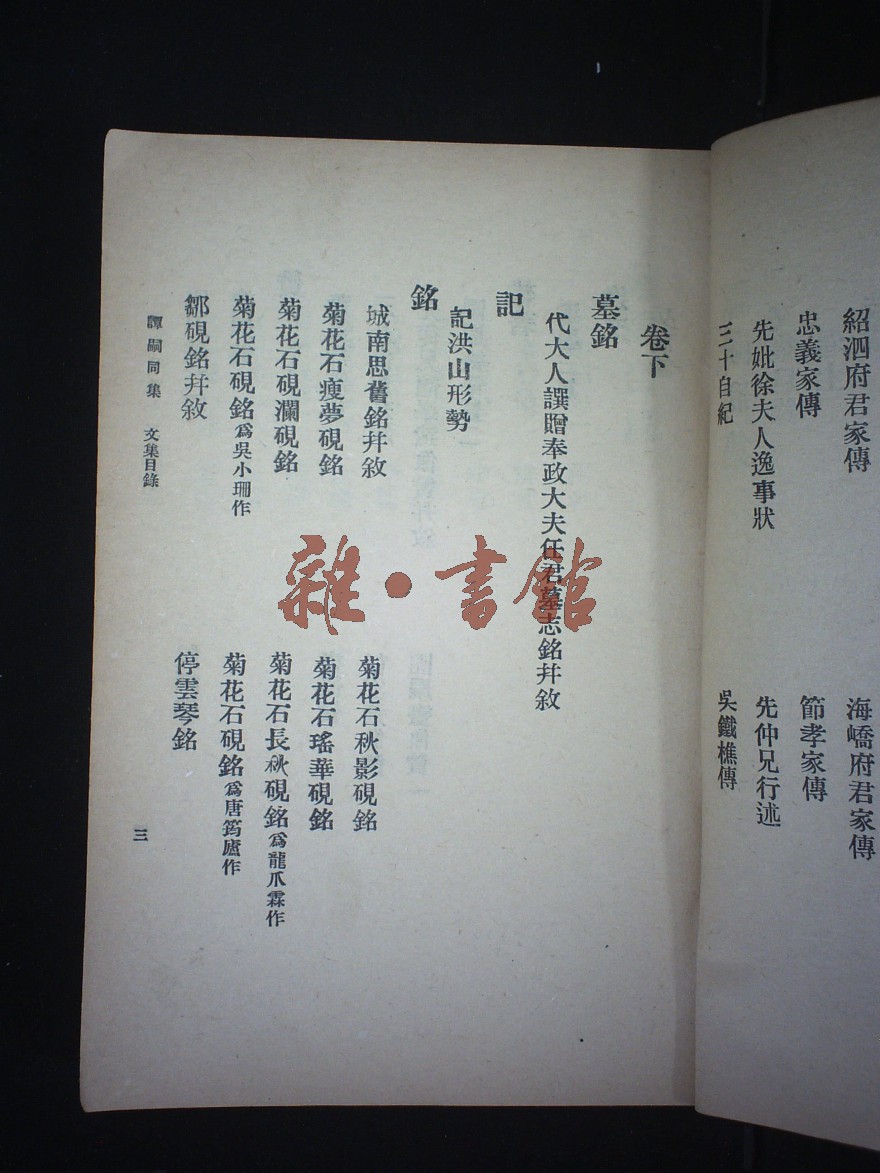 紹泗府君家傳
海嶠府君家傳
忠義家傳
節孝家傳
先妣徐夫人逸事狀
先仲兄行述
三十自紀
吳鐵樵傳
卷下
墓銘
代大人譔贈奉政大夫任君墓志銘幷敘
記
記洪山形勢
銘
城南思舊銘幷敘
菊花石秋影硯銘
菊花石瘦夢硯銘
菊花石瑤華硯銘
菊花石硯瀾硯銘
菊花石長秋硯銘爲龍爪霖作
菊花石硯銘爲吳小珊作
菊花石硯銘爲唐筠廬作
鄒硯銘幷敘
停雲琴銘
譚嗣同集 文集目錄
三
雜·書館